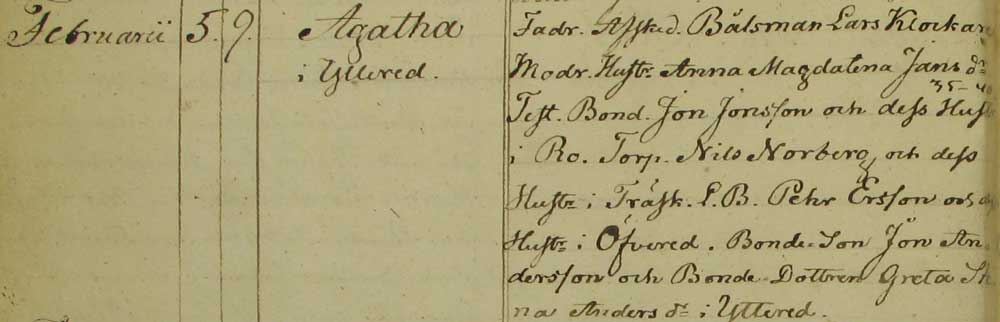 Februarii 5. 9. Agatha
i Yttered.
Fadr. Afsked. Båtsman Lars Klockare
Modr. Hustr Anna Magdalena Jans dr
35-40
Test. Bond. Jon Jonsson och dess Hust
i Ro. Torp. Nils Norberg och dess
Hustr i Träsk. E. B. Pehr Ersson och
Hustr i Öfvered. Bonde-Son Jön An
dersson och Bonde-Dottren Greta St
na Anders dr i Yttered.